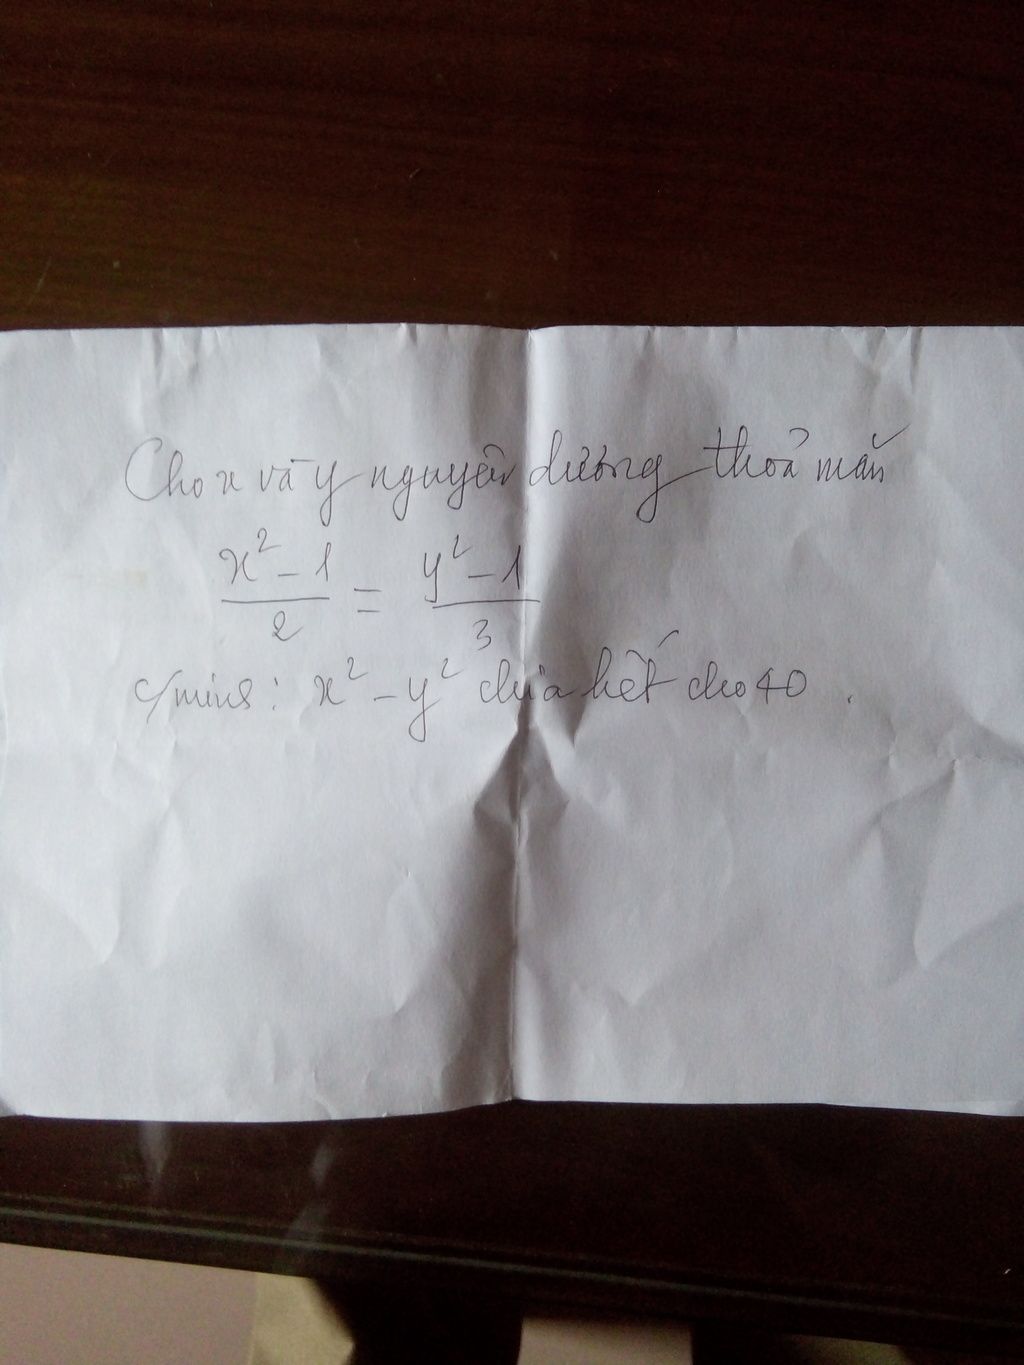 Cho x và y nguyên dương thoả mãn
x² - 1 / 2 = y² - 1 / 3
c/minh: x² - y² chia hết cho 40.